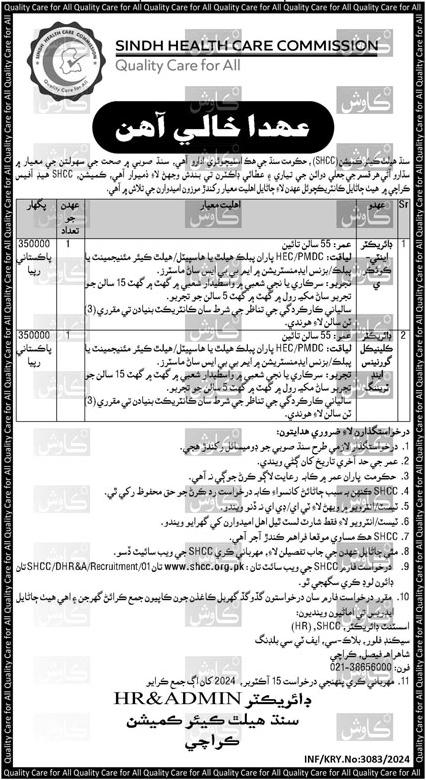 Quality Care for All Quality Care for All Quality Care for All Quality Care for All Quality Care for All Quality Care for All
SINDH HEALTH CARE COMMISSION
SINDH HEALTH CARE COMMISSION
Quality Care for All
عهدا خالي آهن
سنڌ هيلٿ ڪيئر ڪميشن (SHCC)، حڪومت سنڌ جي هڪ اسٽيچوئري ادارو آهي. سنڌ صوبي ۾ صحت جي سهولتن جي معيار ۾
سڌارو آڻي هر قسم جي جعلي دوائن جي تياري ۽ عطائي ڊاڪٽرن تي بندش وجهڻ لاءِ ذميوار آهي، ڪميشن، SHCC هيڊ آفيس
ڪراچي ۾ هيٺ ڄاڻايل ڪانٽريڪچوئل عهدن لاءِ ڄاڻايل اهليت معيار رکندڙ موزون اميدوارن جي تلاش ۾ آهي.
Sr عهدو اهليت معيار عهدن جو تعداد پگهار
1 ڊائريڪٽر اينٽي-
عمر: 55 سالن تائين
لياقت: HEC/PMDC پاران پبلڪ هيلٿ يا هاسپيٽل/هيلٿ ڪيئر مئنيجمينٽ يا
پبلڪ/بزنس ايڊمنسٽريشن ۾ ايم بي بي ايس سان ماسٽرز.
تجربو: سرڪاري يا نجي شعبي ۾ واسطيدار شعبي ۾ گهٽ ۾ گهٽ 15 سالن جو
تجربو سان مکيه رول ۾ گهٽ ۾ گهٽ 5 سالن جو تجربو.
سالياني ڪارڪردگي جي تناظر جي شرط سان ڪانٽريڪٽ بنيادن تي مقرري (3)
ٽن سالن لاءِ هوندي.
1
350000 پاڪستاني رپيا
2 ڊائريڪٽر ڪلينيڪل گورننس اينڊ ٽريننگ
عمر: 55 سالن تائين
لياقت: HEC/PMDC پاران پبلڪ هيلٿ يا هاسپيٽل/هيلٿ ڪيئر مئنيجمينٽ يا
پبلڪ/بزنس ايڊمنسٽريشن ۾ ايم بي بي ايس سان ماسٽرز.
تجربو: سرڪاري يا نجي شعبي ۾ واسطيدار شعبي ۾ گهٽ ۾ گهٽ 15 سالن جو
تجربو سان مکيه رول ۾ گهٽ ۾ گهٽ 5 سالن جو تجربو.
سالياني ڪارڪردگي جي تناظر جي شرط سان ڪانٽريڪٽ بنيادن تي مقرري (3)
ٽن سالن لاءِ هوندي.
1
350000 پاڪستاني رپيا
درخواستگذارن لاءِ ضروري هدايتون:
1. درخواستگذار لازمي طرح سنڌ صوبي جو ڊوميسائل رکندڙ هجي.
2. عمر جي حد آخري تاريخ کان ڳڻي ويندي.
3. حڪومت پاران عمر ۾ ڪابه رعايت لاڳو ڪرڻ جوڳي نه آهي.
4. SHCC ڪنهن به سبب ڄاڻائڻ کانسواءِ ڪابه درخواست رد ڪرڻ جو حق محفوظ رکي ٿي.
5. ٽيسٽ/انٽرويو ۾ ويهڻ لاءِ ٽي اي/ڊي اي نه ڏنو ويندو.
6. ٽيسٽ/انٽرويو لاءِ فقط شارٽ لسٽ ٿيل اهل اميدوارن کي گهرايو ويندو.
7. SHCC هڪ مساوي موقعا فراهم ڪندڙ آجر آهي.
8. مٿي ڄاڻايل عهدن جي جاب تفصيلن لاءِ، مهرباني ڪري SHCC جي ويب سائيٽ ڏسو.
9. درخواست فارم SHCC جي ويب سائيٽ تان: www.shcc.org.pk تان SHCC/DHR&A/Recruitment/01 تان
ڊائون لوڊ ڪري سگهجي ٿو.
10. مقرر درخواست فارم سان درخواستون گڏوگڏ گهربل ڪاغذن جون ڪاپيون جمع ڪرائڻ گهرجن ۽ اهي هيٺ ڄاڻايل
ايڊريس تي اماڻيون وينديون:
اسسٽنٽ ڊائريڪٽر، SHCC, (HR)
سيڪنڊ فلور، بلاڪ-سي، ايف ٽي سي بلڊنگ
شاهراهه فيصل، ڪراچي
فون: 021-38656000
11. مهرباني ڪري پنهنجي درخواست 15 آڪٽوبر، 2024 کان اڳ جمع ڪرايو
ڊائريڪٽر HR&ADMIN
سنڌ هيلٿ ڪيئر ڪميشن
ڪراچي
INF/KRY.No:3083/2024
Quality Care for All Quality Care for All Quality Care for All Quality Care for All Quality Care for All Quality Care for All